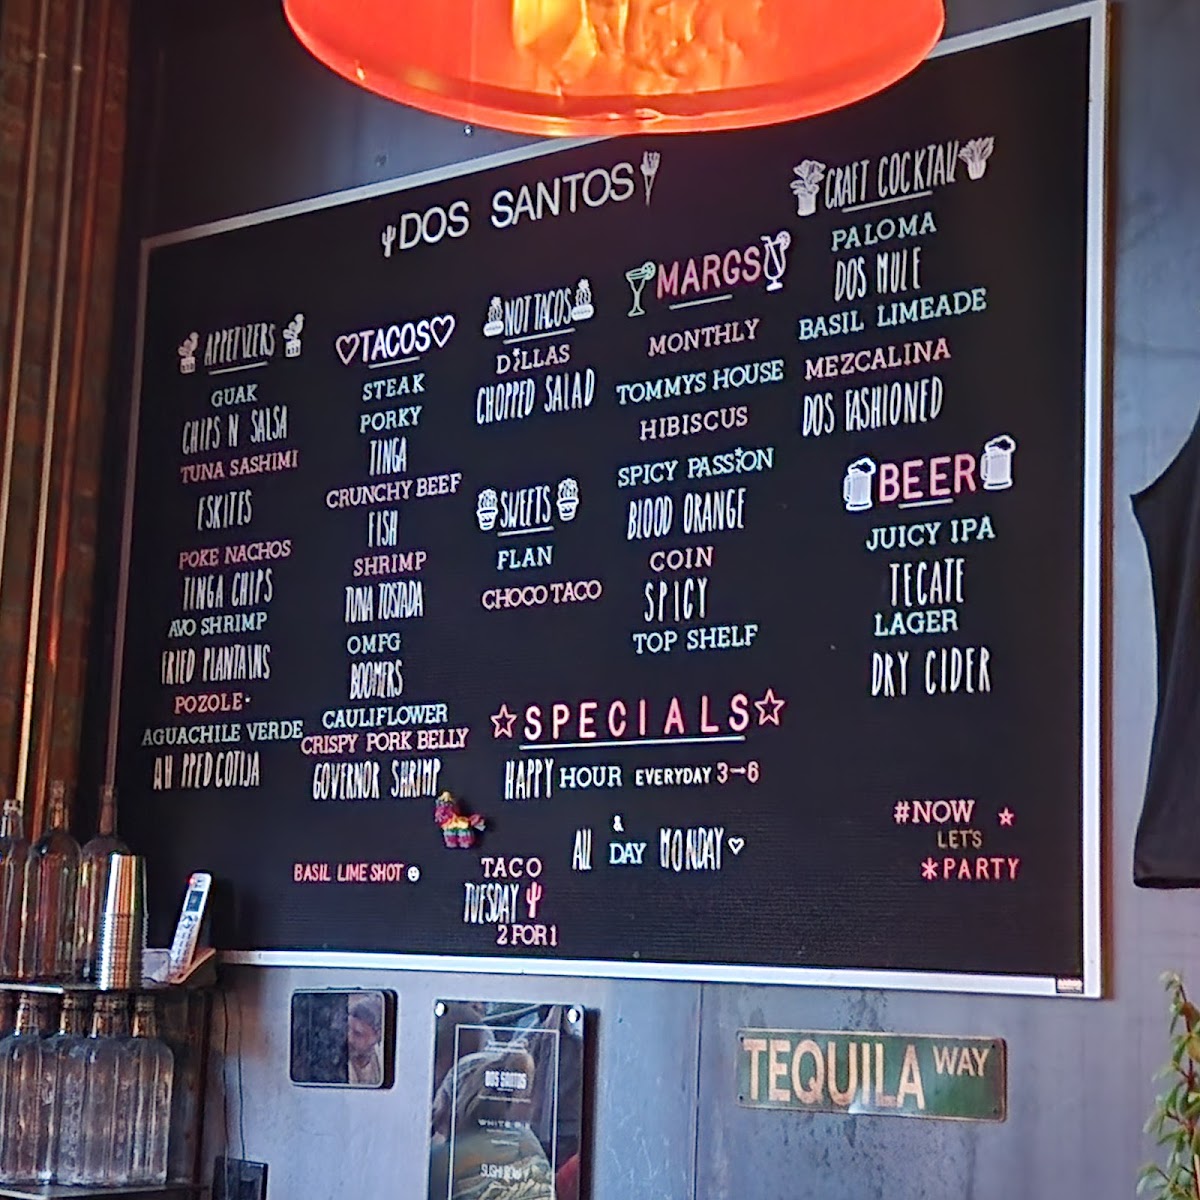 DOS SANTOS
APPETIZERS
GUAK
CHIPS N SALSA
TUNA SASHIMI
ESKITES
POKE NACHOS
TINGA CHIPS
AVO SHRIMP
FRIED PLANTAINS
POZOLE
AGUACHILE VERDE
COTIJA
♡TACOS♡
STEAK
PORKY
TINGA
CRUNCHY BEEF
FISH
SHRIMP
TUNA TOSTADA
OMFG
BOOMERS
CAULIFLOWER
CRISPY PORK BELLY
GOVERNOR SHRIMP
NOT TACOS
DILLAS
CHOPPED SALAD
SWEETS
FLAN
CHOCO TACO
MARGS
MONTHLY
TOMMYS HOUSE
HIBISCUS
SPICY PASSION
BLOOD ORANGE
COIN
SPICY
TOP SHELF
CRAFT COCKTAIL
PALOMA
DOS MULE
BASIL LIMEADE
MEZCALINA
DOS FASHIONED
BEER
JUICY IPA
TECATE
LAGER
DRY CIDER
☆SPECIALS☆
HAPPY HOUR EVERYDAY 3-6
&
ALL DAY MONDAY♡
BASIL LIME SHOT
TACO
TUESDAY
2 FOR 1
#NOW
LET'S
*PARTY
DOS SANTOS
TEQUILA WAY